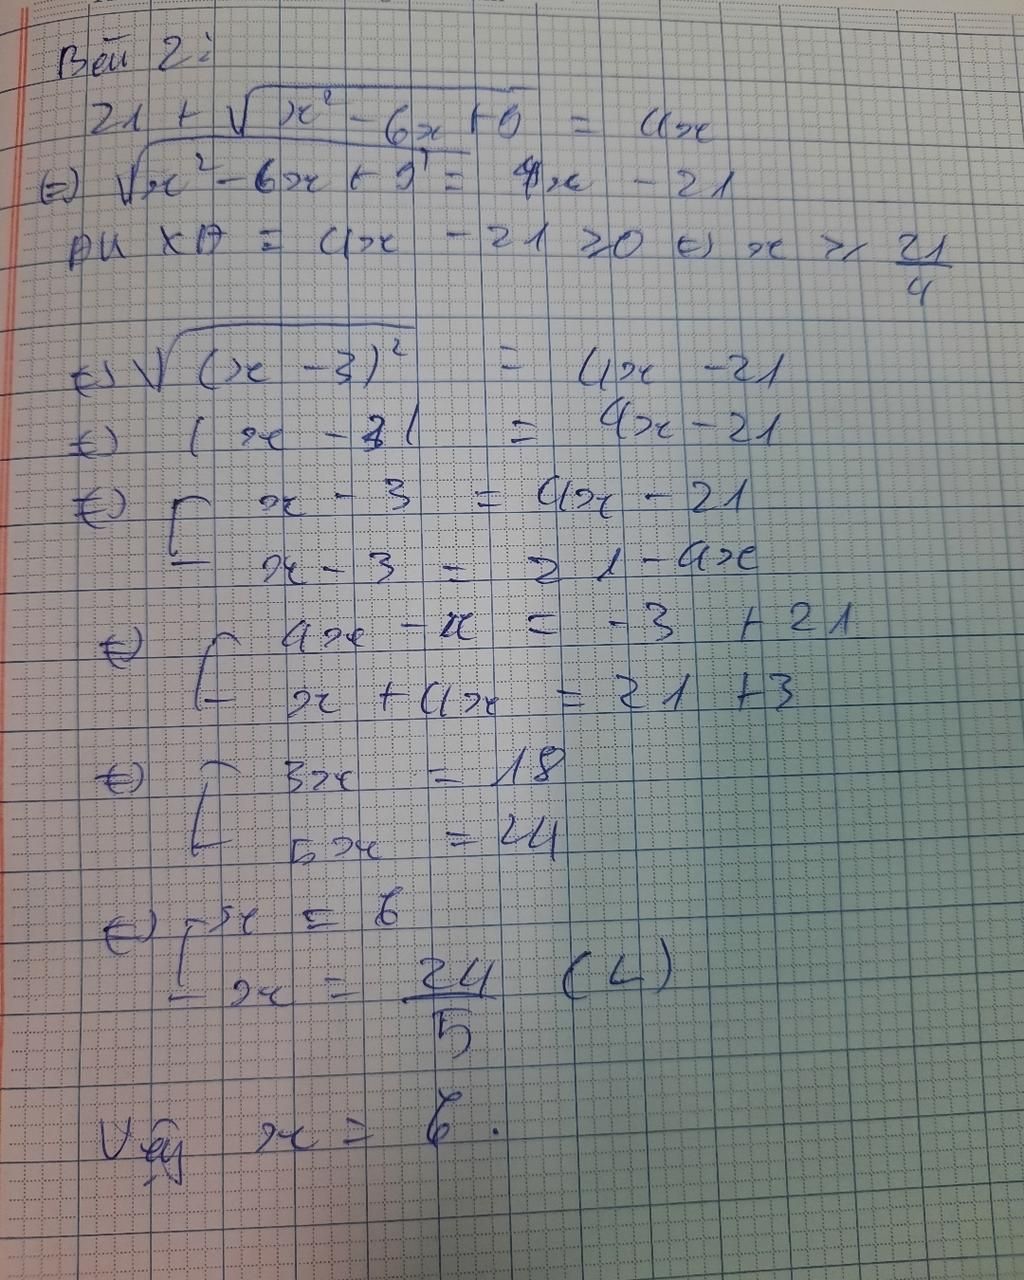 Bài 2:
21 + √(x² - 6x + 9) = 4x
(=) √(x² - 6x + 9) = 4x - 21
ĐK XĐ = 4x - 21 ≥ 0 (=) x ≥ 21/4
(=) √((x - 3)²) = 4x - 21
(=) |x - 3| = 4x - 21
(=) [ x - 3 = 4x - 21
x - 3 = 21 - 4x
(=) [ 4x - x = -3 + 21
x + 4x = 21 + 3
(=) [ 3x = 18
5x = 24
(=) [ x = 6
x = 24/5 (L)
Vậy x = 6.